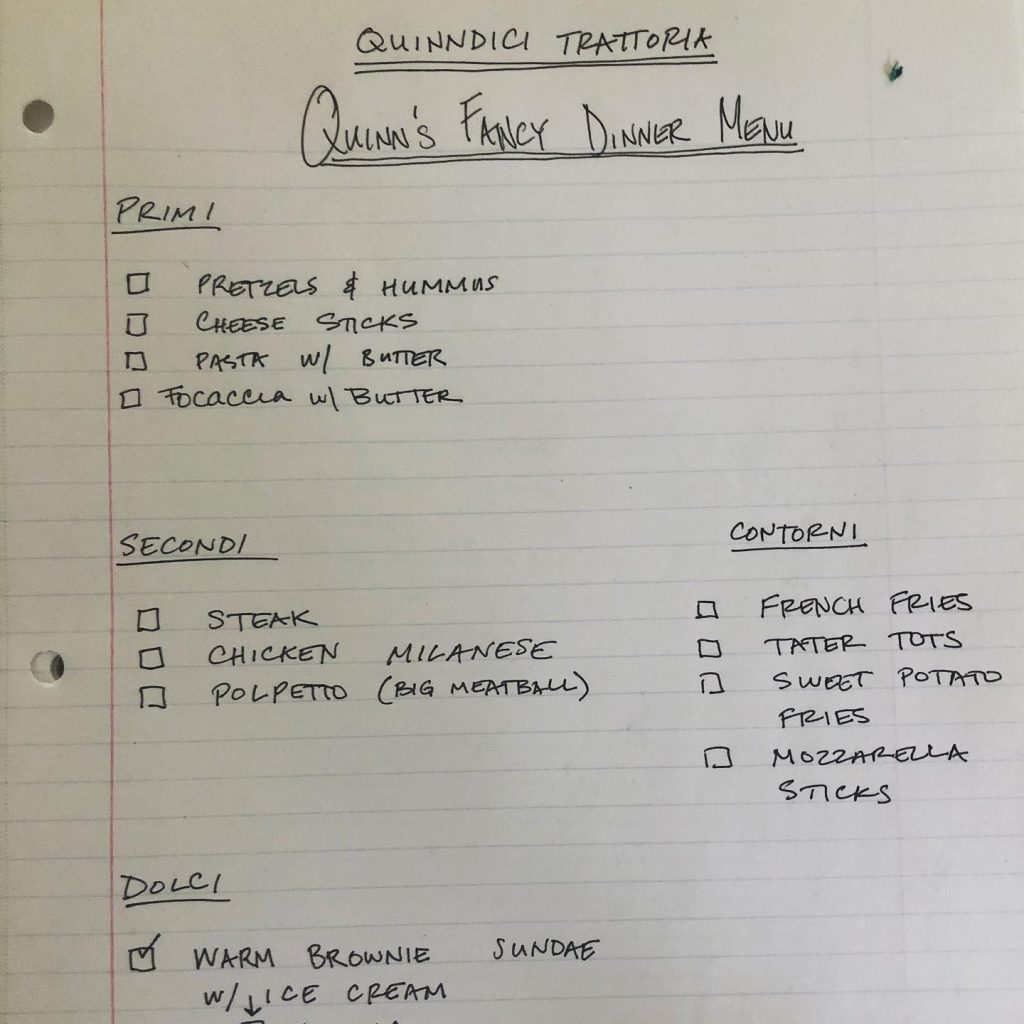 QUINNDICI TRATTORIA
QUINN'S FANCY DINNER MENU
PRIMI
☐ PRETZELS & HUMMUS
☐ CHEESE STICKS
☐ PASTA W/ BUTTER
☐ FOCACCIA W/ BUTTER
SECONDI
☐ STEAK
☐ CHICKEN MILANESE
☐ POLPETTO (BIG MEATBALL)
CONTORNI
☐ FRENCH FRIES
☐ TATER TOTS
☐ SWEET POTATO
FRIES
☐ MOZZARELLA
STICKS
DOLCI
☑ WARM BROWNIE SUNDAE
W/ ↓ ICE CREAM